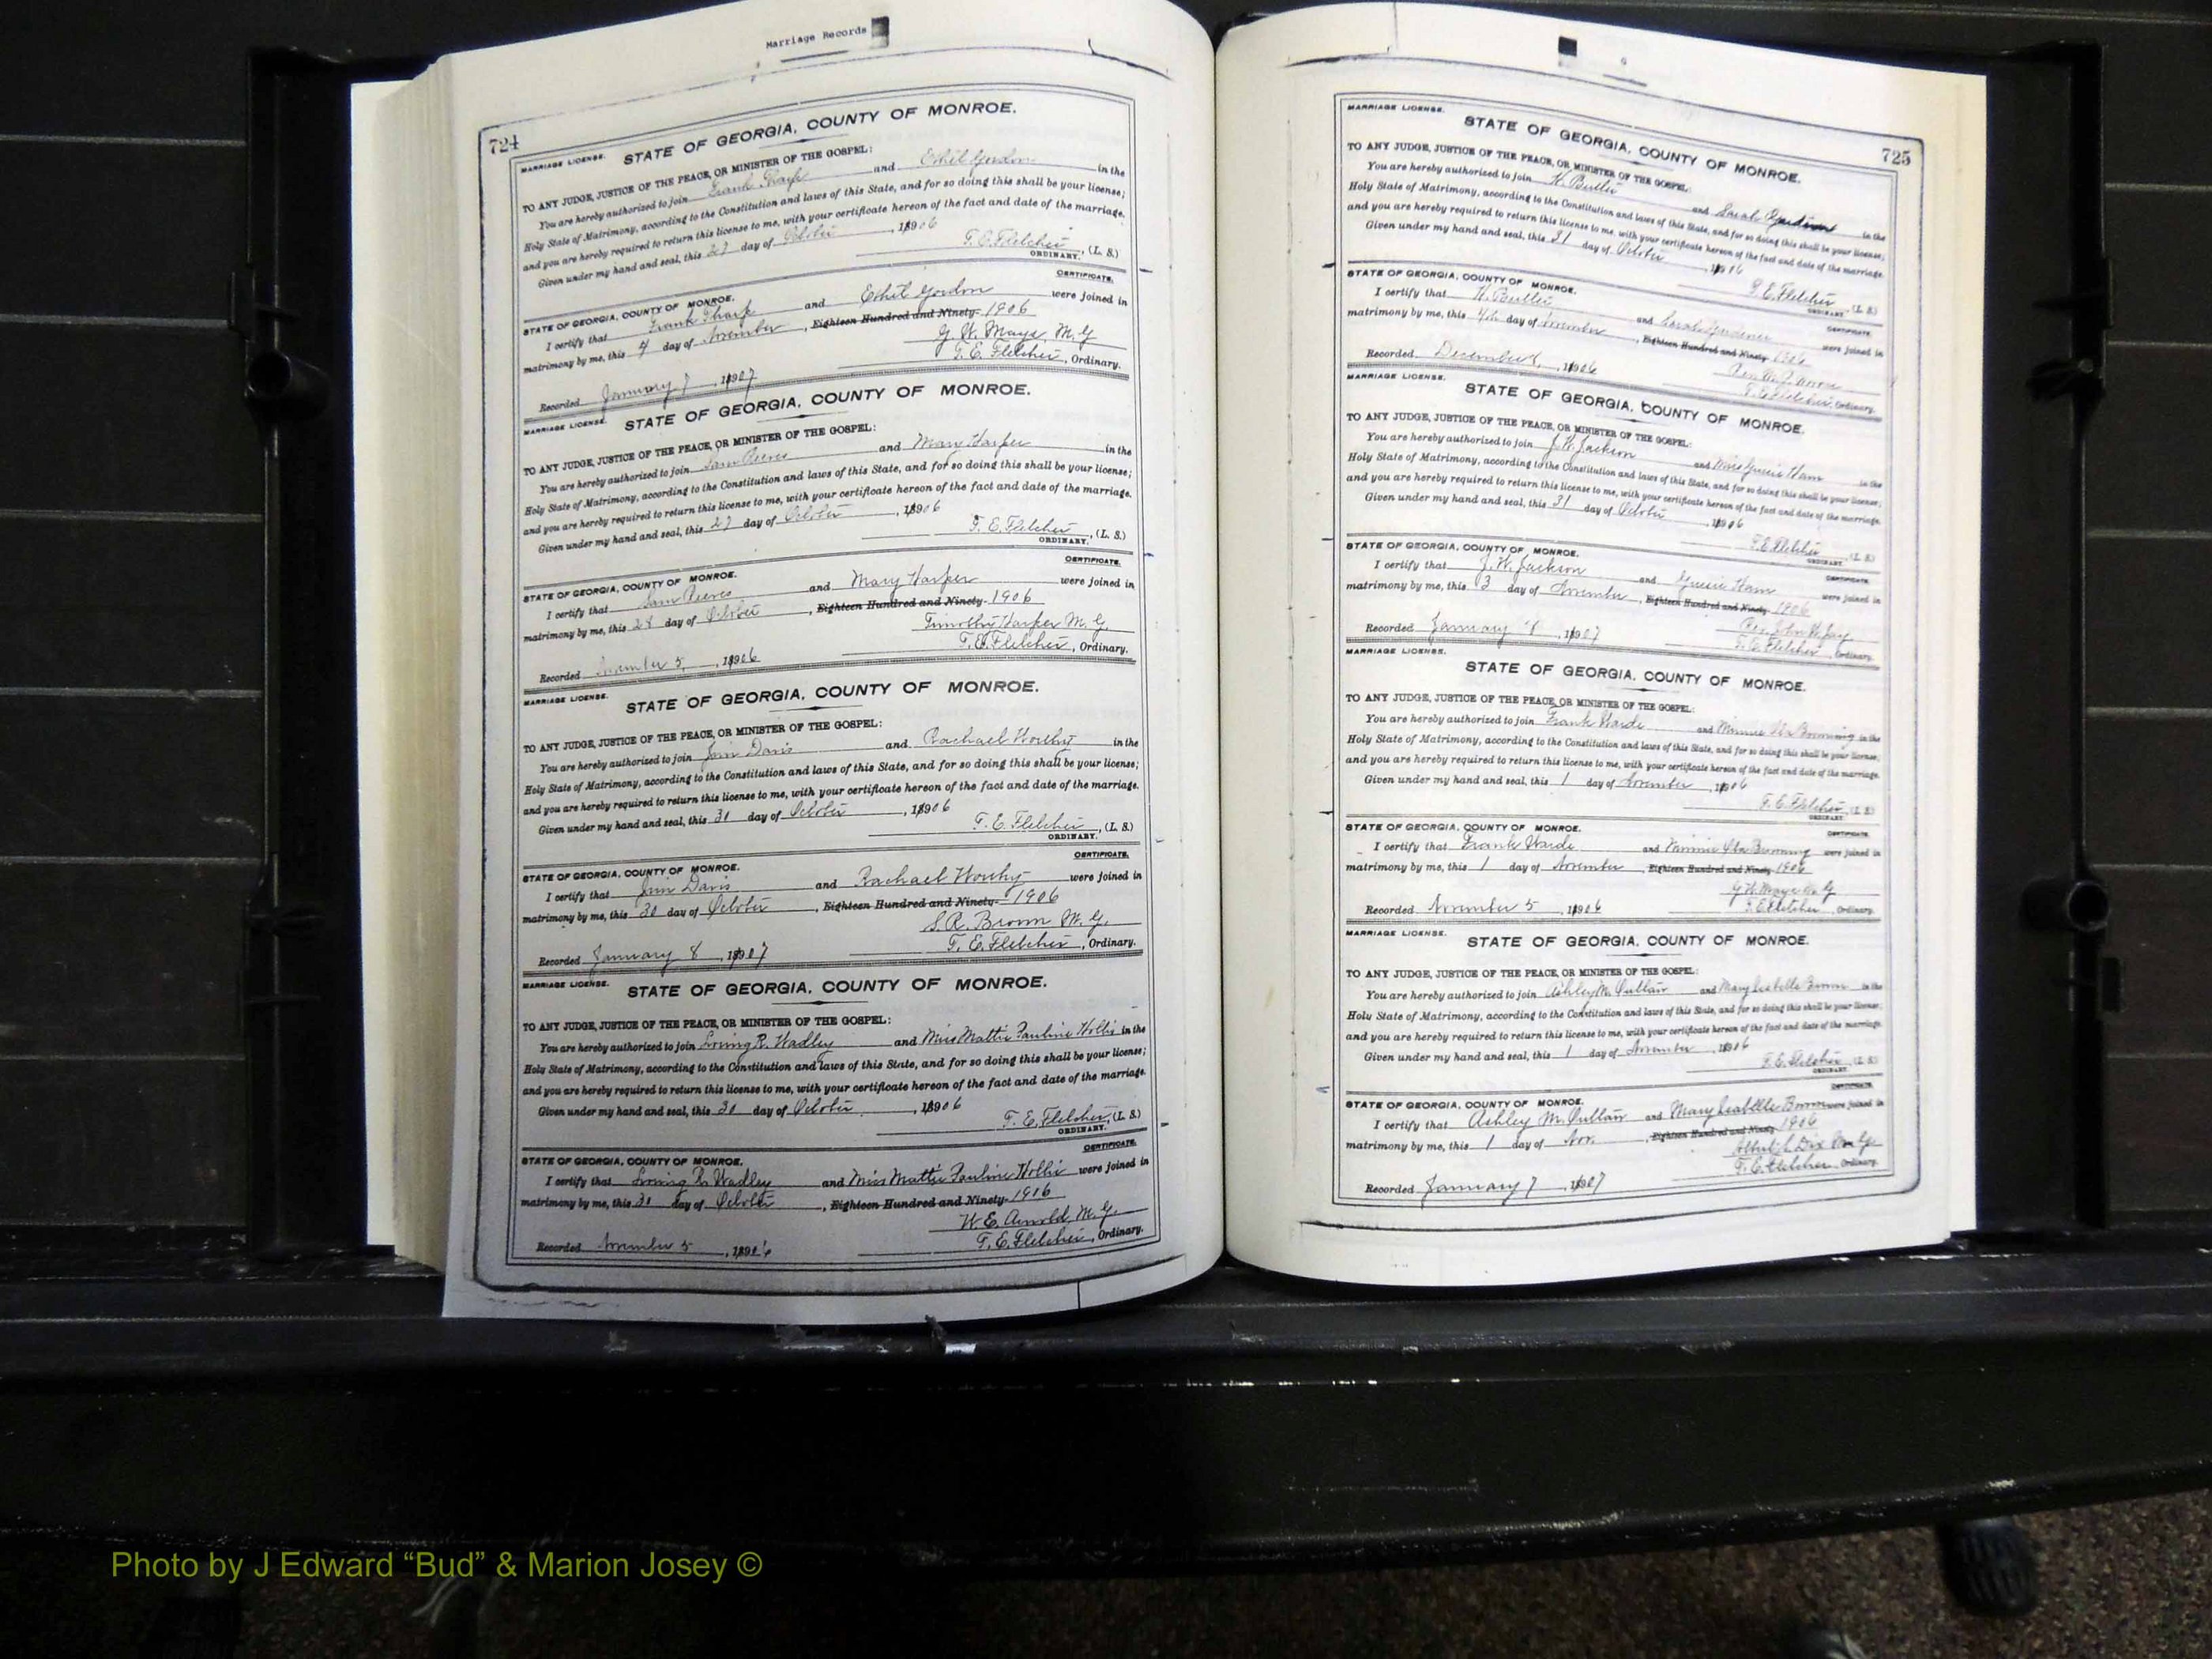 Marriage Records
724
MARRIAGE LICENSE. STATE OF GEORGIA, COUNTY OF MONROE.
TO ANY JUDGE, JUSTICE OF THE PEACE, OR MINISTER OF THE GOSPEL:
You are hereby authorized to join Frank Tharpe and Ethel Gordon in the
Holy State of Matrimony, according to the Constitution and laws of this State, and for so doing this shall be your license;
and you are hereby required to return this license to me, with your certificate hereon of the fact and date of the marriage.
Given under my hand and seal, this 27 day of October, 1906
T. E. Fletcher, (L. S.)
ORDINARY.
CERTIFICATE.
STATE OF GEORGIA, COUNTY OF MONROE.
I certify that Frank Tharpe and Ethel Gordon were joined in
matrimony by me, this 4 day of November, Eighteen Hundred and Ninety- 1906
G. W. Mays, M. G
Recorded January 7, 1907 T. E. Fletcher, Ordinary.
MARRIAGE LICENSE. STATE OF GEORGIA, COUNTY OF MONROE.
TO ANY JUDGE, JUSTICE OF THE PEACE, OR MINISTER OF THE GOSPEL:
You are hereby authorized to join Sam Reeves and Mary Harper in the
Holy State of Matrimony, according to the Constitution and laws of this State, and for so doing this shall be your license;
and you are hereby required to return this license to me, with your certificate hereon of the fact and date of the marriage.
Given under my hand and seal, this 27 day of October, 1906
T. E. Fletcher, (L. S.)
ORDINARY.
CERTIFICATE.
STATE OF GEORGIA, COUNTY OF MONROE.
I certify that Sam Reeves and Mary Harper were joined in
matrimony by me, this 28 day of October, Eighteen Hundred and Ninety- 1906
Timothy Harper M. G.
Recorded November 5, 1906 T. E. Fletcher, Ordinary.
MARRIAGE LICENSE. STATE OF GEORGIA, COUNTY OF MONROE.
TO ANY JUDGE, JUSTICE OF THE PEACE, OR MINISTER OF THE GOSPEL:
You are hereby authorized to join Jim Davis and Rachael Worthy in the
Holy State of Matrimony, according to the Constitution and laws of this State, and for so doing this shall be your license;
and you are hereby required to return this license to me, with your certificate hereon of the fact and date of the marriage.
Given under my hand and seal, this 30 day of October, 1906
T. E. Fletcher, (L. S.)
ORDINARY.
CERTIFICATE.
STATE OF GEORGIA, COUNTY OF MONROE.
I certify that Jim Davis and Rachael Worthy were joined in
matrimony by me, this 30 day of October, Eighteen Hundred and Ninety- 1906
S. R. Brown M. G.
Recorded January 8, 1907 T. E. Fletcher, Ordinary.
MARRIAGE LICENSE. STATE OF GEORGIA, COUNTY OF MONROE.
TO ANY JUDGE, JUSTICE OF THE PEACE, OR MINISTER OF THE GOSPEL:
You are hereby authorized to join Loring R. Wadley and Miss Mattie Pauline Hollis in the
Holy State of Matrimony, according to the Constitution and laws of this State, and for so doing this shall be your license;
and you are hereby required to return this license to me, with your certificate hereon of the fact and date of the marriage.
Given under my hand and seal, this 30 day of October, 1906
T. E. Fletcher, (L. S.)
ORDINARY.
CERTIFICATE.
STATE OF GEORGIA, COUNTY OF MONROE.
I certify that Loring R. Wadley and Miss Mattie Pauline Hollis were joined in
matrimony by me, this 30 day of October, Eighteen Hundred and Ninety- 1906
W. E. Arnold, M. G.
Recorded November 5, 1906 T. E. Fletcher, Ordinary.
725
MARRIAGE LICENSE.
STATE OF GEORGIA, COUNTY OF MONROE.
TO ANY JUDGE, JUSTICE OF THE PEACE, OR MINISTER OF THE GOSPEL:
You are hereby authorized to join W. Butler and Sarah in the
Holy State of Matrimony, according to the Constitution and laws of this State, and for so doing this shall be your license;
and you are hereby required to return this license to me, with your certificate hereon of the fact and date of the marriage.
Given under my hand and seal, this 31 day of October, 1906
T. E. Fletcher (L. S.)
ORDINARY.
CERTIFICATE.
STATE OF GEORGIA, COUNTY OF MONROE.
I certify that W. Butler and Sarah were joined in
matrimony by me, this 4th day of November, Eighteen Hundred and Ninety- 1906
Recorded December, 1906 T. E. Fletcher, Ordinary.
MARRIAGE LICENSE.
STATE OF GEORGIA, COUNTY OF MONROE.
TO ANY JUDGE, JUSTICE OF THE PEACE, OR MINISTER OF THE GOSPEL:
You are hereby authorized to join J. W. Jackson and Miss Gussie Ham in the
Holy State of Matrimony, according to the Constitution and laws of this State, and for so doing this shall be your license;
and you are hereby required to return this license to me, with your certificate hereon of the fact and date of the marriage.
Given under my hand and seal, this 31 day of October, 1906
T. E. Fletcher (L. S.)
ORDINARY.
CERTIFICATE.
STATE OF GEORGIA, COUNTY OF MONROE.
I certify that J. W. Jackson and Gussie Ham were joined in
matrimony by me, this 3 day of November, Eighteen Hundred and Ninety- 1906
Rev. John W. Jay
Recorded January 8, 1907 T. E. Fletcher, Ordinary.
MARRIAGE LICENSE.
STATE OF GEORGIA, COUNTY OF MONROE.
TO ANY JUDGE, JUSTICE OF THE PEACE, OR MINISTER OF THE GOSPEL:
You are hereby authorized to join Frank Warde and Minnie Browning in the
Holy State of Matrimony, according to the Constitution and laws of this State, and for so doing this shall be your license;
and you are hereby required to return this license to me, with your certificate hereon of the fact and date of the marriage.
Given under my hand and seal, this 1 day of November, 1906
T. E. Fletcher (L. S.)
ORDINARY.
CERTIFICATE.
STATE OF GEORGIA, COUNTY OF MONROE.
I certify that Frank Warde and Minnie Browning were joined in
matrimony by me, this 1 day of November, Eighteen Hundred and Ninety 1906
G. W. Mays M. G
Recorded November 5, 1906 T. E. Fletcher, Ordinary.
MARRIAGE LICENSE.
STATE OF GEORGIA, COUNTY OF MONROE.
TO ANY JUDGE, JUSTICE OF THE PEACE, OR MINISTER OF THE GOSPEL:
You are hereby authorized to join Ashley M. Pullain and Mary Isabelle Brown in the
Holy State of Matrimony, according to the Constitution and laws of this State, and for so doing this shall be your license;
and you are hereby required to return this license to me, with your certificate hereon of the fact and date of the marriage.
Given under my hand and seal, this 1 day of November, 1906
T. E. Fletcher (L. S.)
ORDINARY.
CERTIFICATE.
STATE OF GEORGIA, COUNTY OF MONROE.
I certify that Ashley M. Pullain and Mary Isabelle Brown were joined in
matrimony by me, this 1 day of Nov., Eighteen Hundred and Ninety 1906
T. E. Fletcher, Ordinary.
Recorded January 7, 1907
Photo by J Edward “Bud” & Marion Josey ©